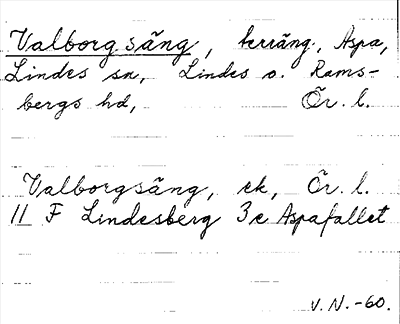 Valborgsäng, terräng., Aspa,
Lindes sn, Lindes o. Rams-
bergs hd, Ör. l.
Valborgsäng, ek, Ör. l.
11 F Lindesberg 3e Aspafallet
V. N. -60.